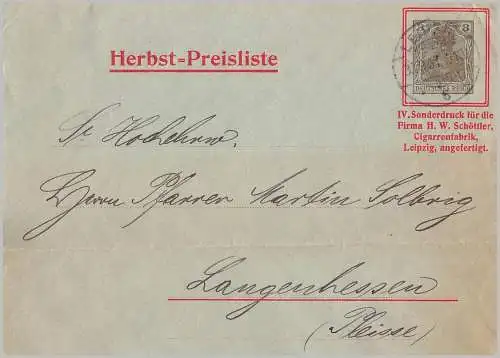 Herbst=Preisliste
3 3
DEUTSCHES REICH
IV. Sonderdruck für die
Firma H. W. Schöttler,
Cigarrenfabrik,
Leipzig, angefertigt.
Sr. Hochehrw.
Herrn Pfarrer Martin Solbrig
Langenhessen
(Pleisse)